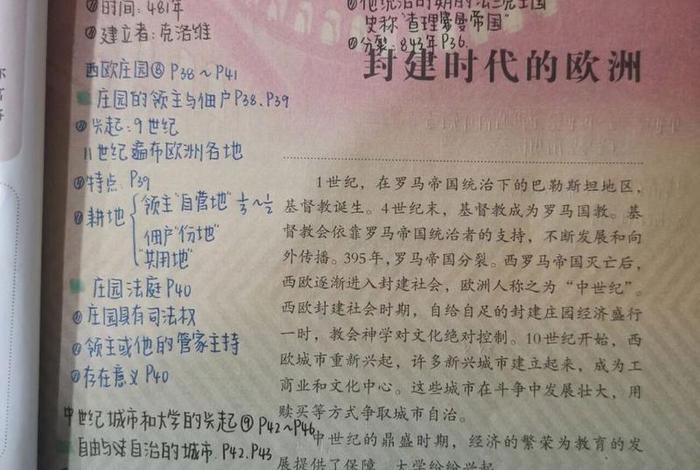 ②时间：481年
③建立者：克洛维
西欧庄园⑧ P38~P41
庄园的领主与佃户 P38、P39
①兴起：9世纪
11世纪遍布欧洲各地
②特点 P39
③耕地 领主"自营地" 1/3~1/2
佃户"份地"
"共用地"
庄园法庭 P40
①庄园具有司法权
②领主或他的管家主持
③存在意义 P40
中世纪城市和大学的兴起⑨ P42~P46
自由与 自治的城市 P42、P43
史称"查理曼帝国"
⑥分裂：843年 P36
封建时代的欧洲
1世纪，在罗马帝国统治下的巴勒斯坦地区，
基督教诞生。4世纪末，基督教成为罗马国教。基
督教会依靠罗马帝国统治者的支持，不断发展和向
外传播。395年，罗马帝国分裂。西罗马帝国灭亡后，
西欧逐渐进入封建社会，欧洲人称之为"中世纪"。
西欧封建社会时期，自给自足的封建庄园经济盛行
一时，教会神学对文化绝对控制。10世纪开始，西
欧城市重新兴起，许多新兴城市建立起来，成为工
商业和文化中心。这些城市在斗争中发展壮大，用
赎买等方式争取城市自治。
中世纪的鼎盛时期，经济的繁荣为教育的发
展提供了保障，大学纷纷兴起